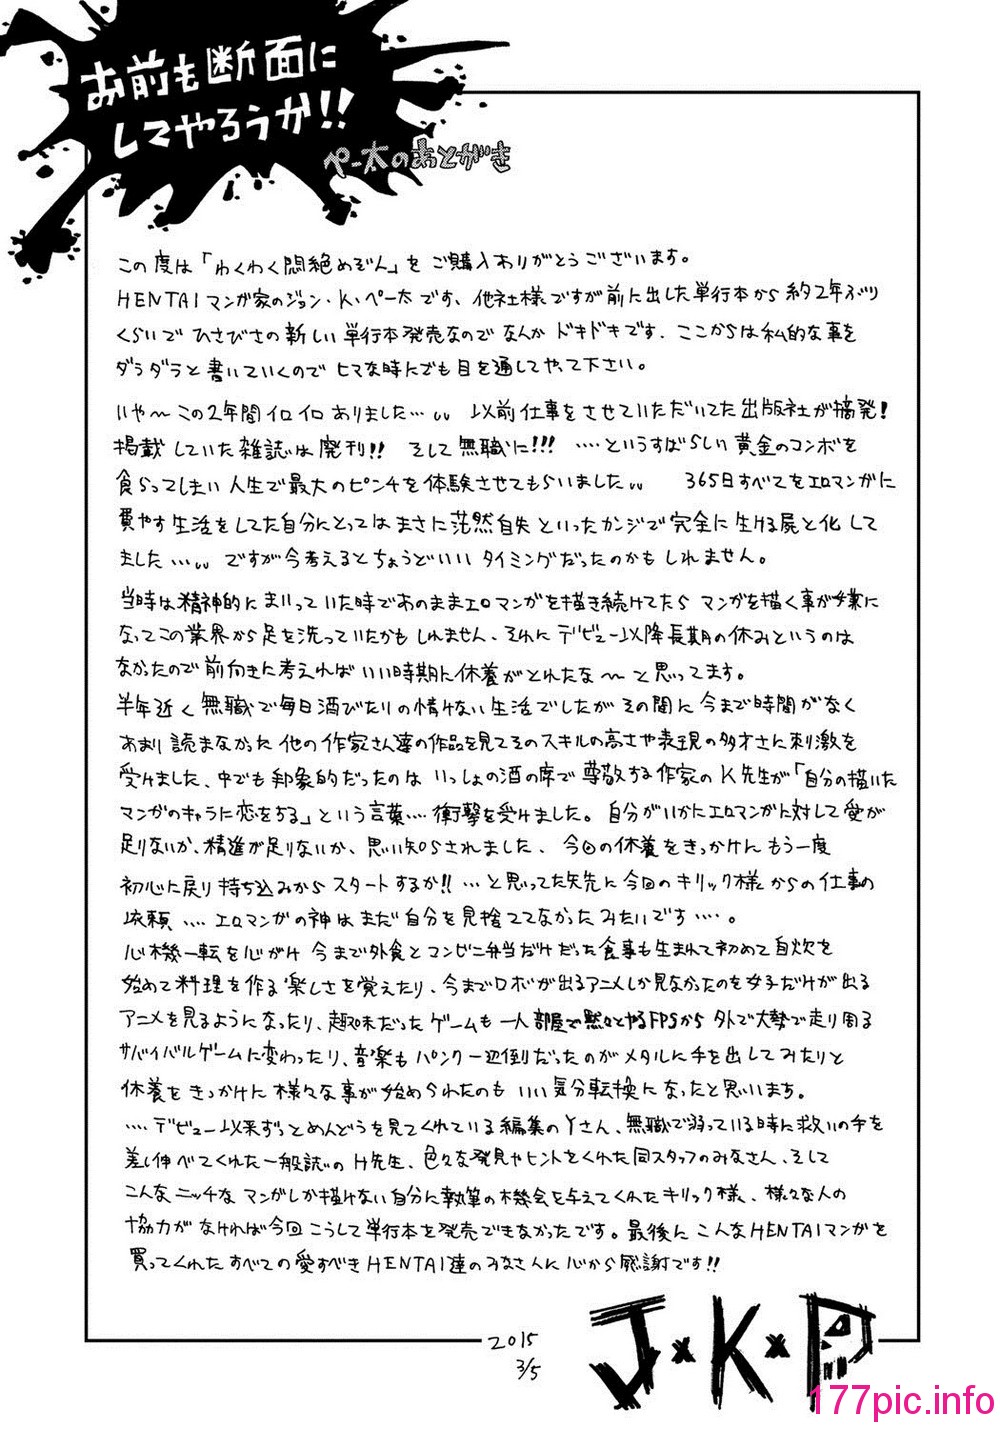 お前も断面に
してやろうか!!
ペー太のあとがき
この度は「わくわく悶絶めぞん」をご購入ありがとうございます。
HENTAIマンガ家のジョン・K・ペー太です、他社様ですが前に出した単行本から約2年ぶり
くらいでひさびさの新しい単行本発売なのでなんかドキドキです．ここからは私的な事を
ダラダラと書いていくのでヒマな時にでも目を通してやって下さい。
いや〜この2年間イロイロありました…。。以前仕事をさせていただいてた出版社が摘発!
掲載していた雑誌は廃刊!! そして無職に!!! ‥‥というすばらしい黄金のコンボを
食らってしまい人生で最大のピンチを体験させてもらいました。。 365日すべてをエロマンガに
費やす生活をしてた自分にとってはまさに茫然自失といったカンジで完全に生ける屍と化して
ました…。。ですが今考えるとちょうどいいタイミングだったのかもしれません。
当時は精神的にまいっていた時であのままエロマンガを描き続けてたらマンガを描く事が嫌に
なってこの業界から足を洗っていたかもしれません、それにデビュー以降長期の休みというのは
なかったので前向きに考えればいい時期に休養がとれたな〜と思ってます。
半年近く無職で毎日酒びたりの情けない生活でしたがその間に今まで時間がなく
あまり読まなかった他の作家さん達の作品を見てそのスキルの高さや表現の多才さに刺激を
受けました、中でも印象的だったのはいっしょの酒の席で尊敬する作家のK先生が「自分の描いた
マンガのキャラに恋をする」という言葉‥‥衝撃を受けました。自分がいかにエロマンガに対して愛が
足りないか、精進が足りないか、思い知らされました、今回の休養をきっかけにもう一度
初心に戻り持ち込みからスタートするか!! …と思ってた矢先に今回のキリック様からの仕事の
依頼‥‥エロマンガの神はまだ自分を見捨ててなかったみたいです‥‥。
心機一転を心がけ今まで外食とコンビニ弁当だけだった食事も生まれて初めて自炊を
始めて料理を作る楽しさを覚えたり、今までロボが出るアニメしか見なかったのを女子だけが出る
アニメを見るようになったり、趣味だったゲームも一人部屋で黙々とやるFPSから外で大勢で走り周る
サバイバルゲームに変わったり、音楽もパンク一辺倒だったのがメタルに手を出してみたりと
休養をきっかけに様々な事が始められたのもいい気分転換になったと思います。
‥‥デビュー以来ずっとめんどうを見てくれている編集のYさん、無職で弱っている時に救いの手を
差し伸べてくれた一般誌のH先生、色々な発見やヒントをくれた同スタッフのみなさん、そして
こんなニッチなマンガしか描けない自分に執筆の機会を与えてくれたキリック様、様々な人の
協力がなければ今回こうして単行本を発売できなかったです。最後にこんなHENTAIマンガを
買ってくれたすべての愛すべきHENTAI達のみなさんに心から感謝です!!
2015
3/5
J×K×P
177pic.info